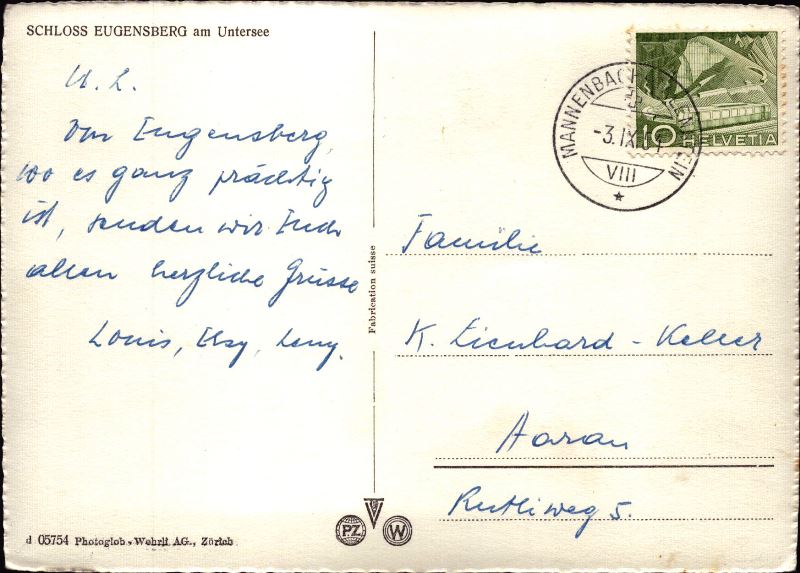 SCHLOSS EUGENSBERG am Untersee
U. L.
Von Eugensberg,
wo es ganz prächtig
ist, senden wir Euch
allen herzliche Grüsse
Louis, Elsy, Leny.
d 05754 Photoglob-Wehrli AG., Zürich
Fabrication suisse
PZ
W
MANNENBACH-SALENSTEIN
-3.IX.
VIII
10 HELVETIA
Familie
K. Lienhard-Keller
Aarau
Rütliweg 5.